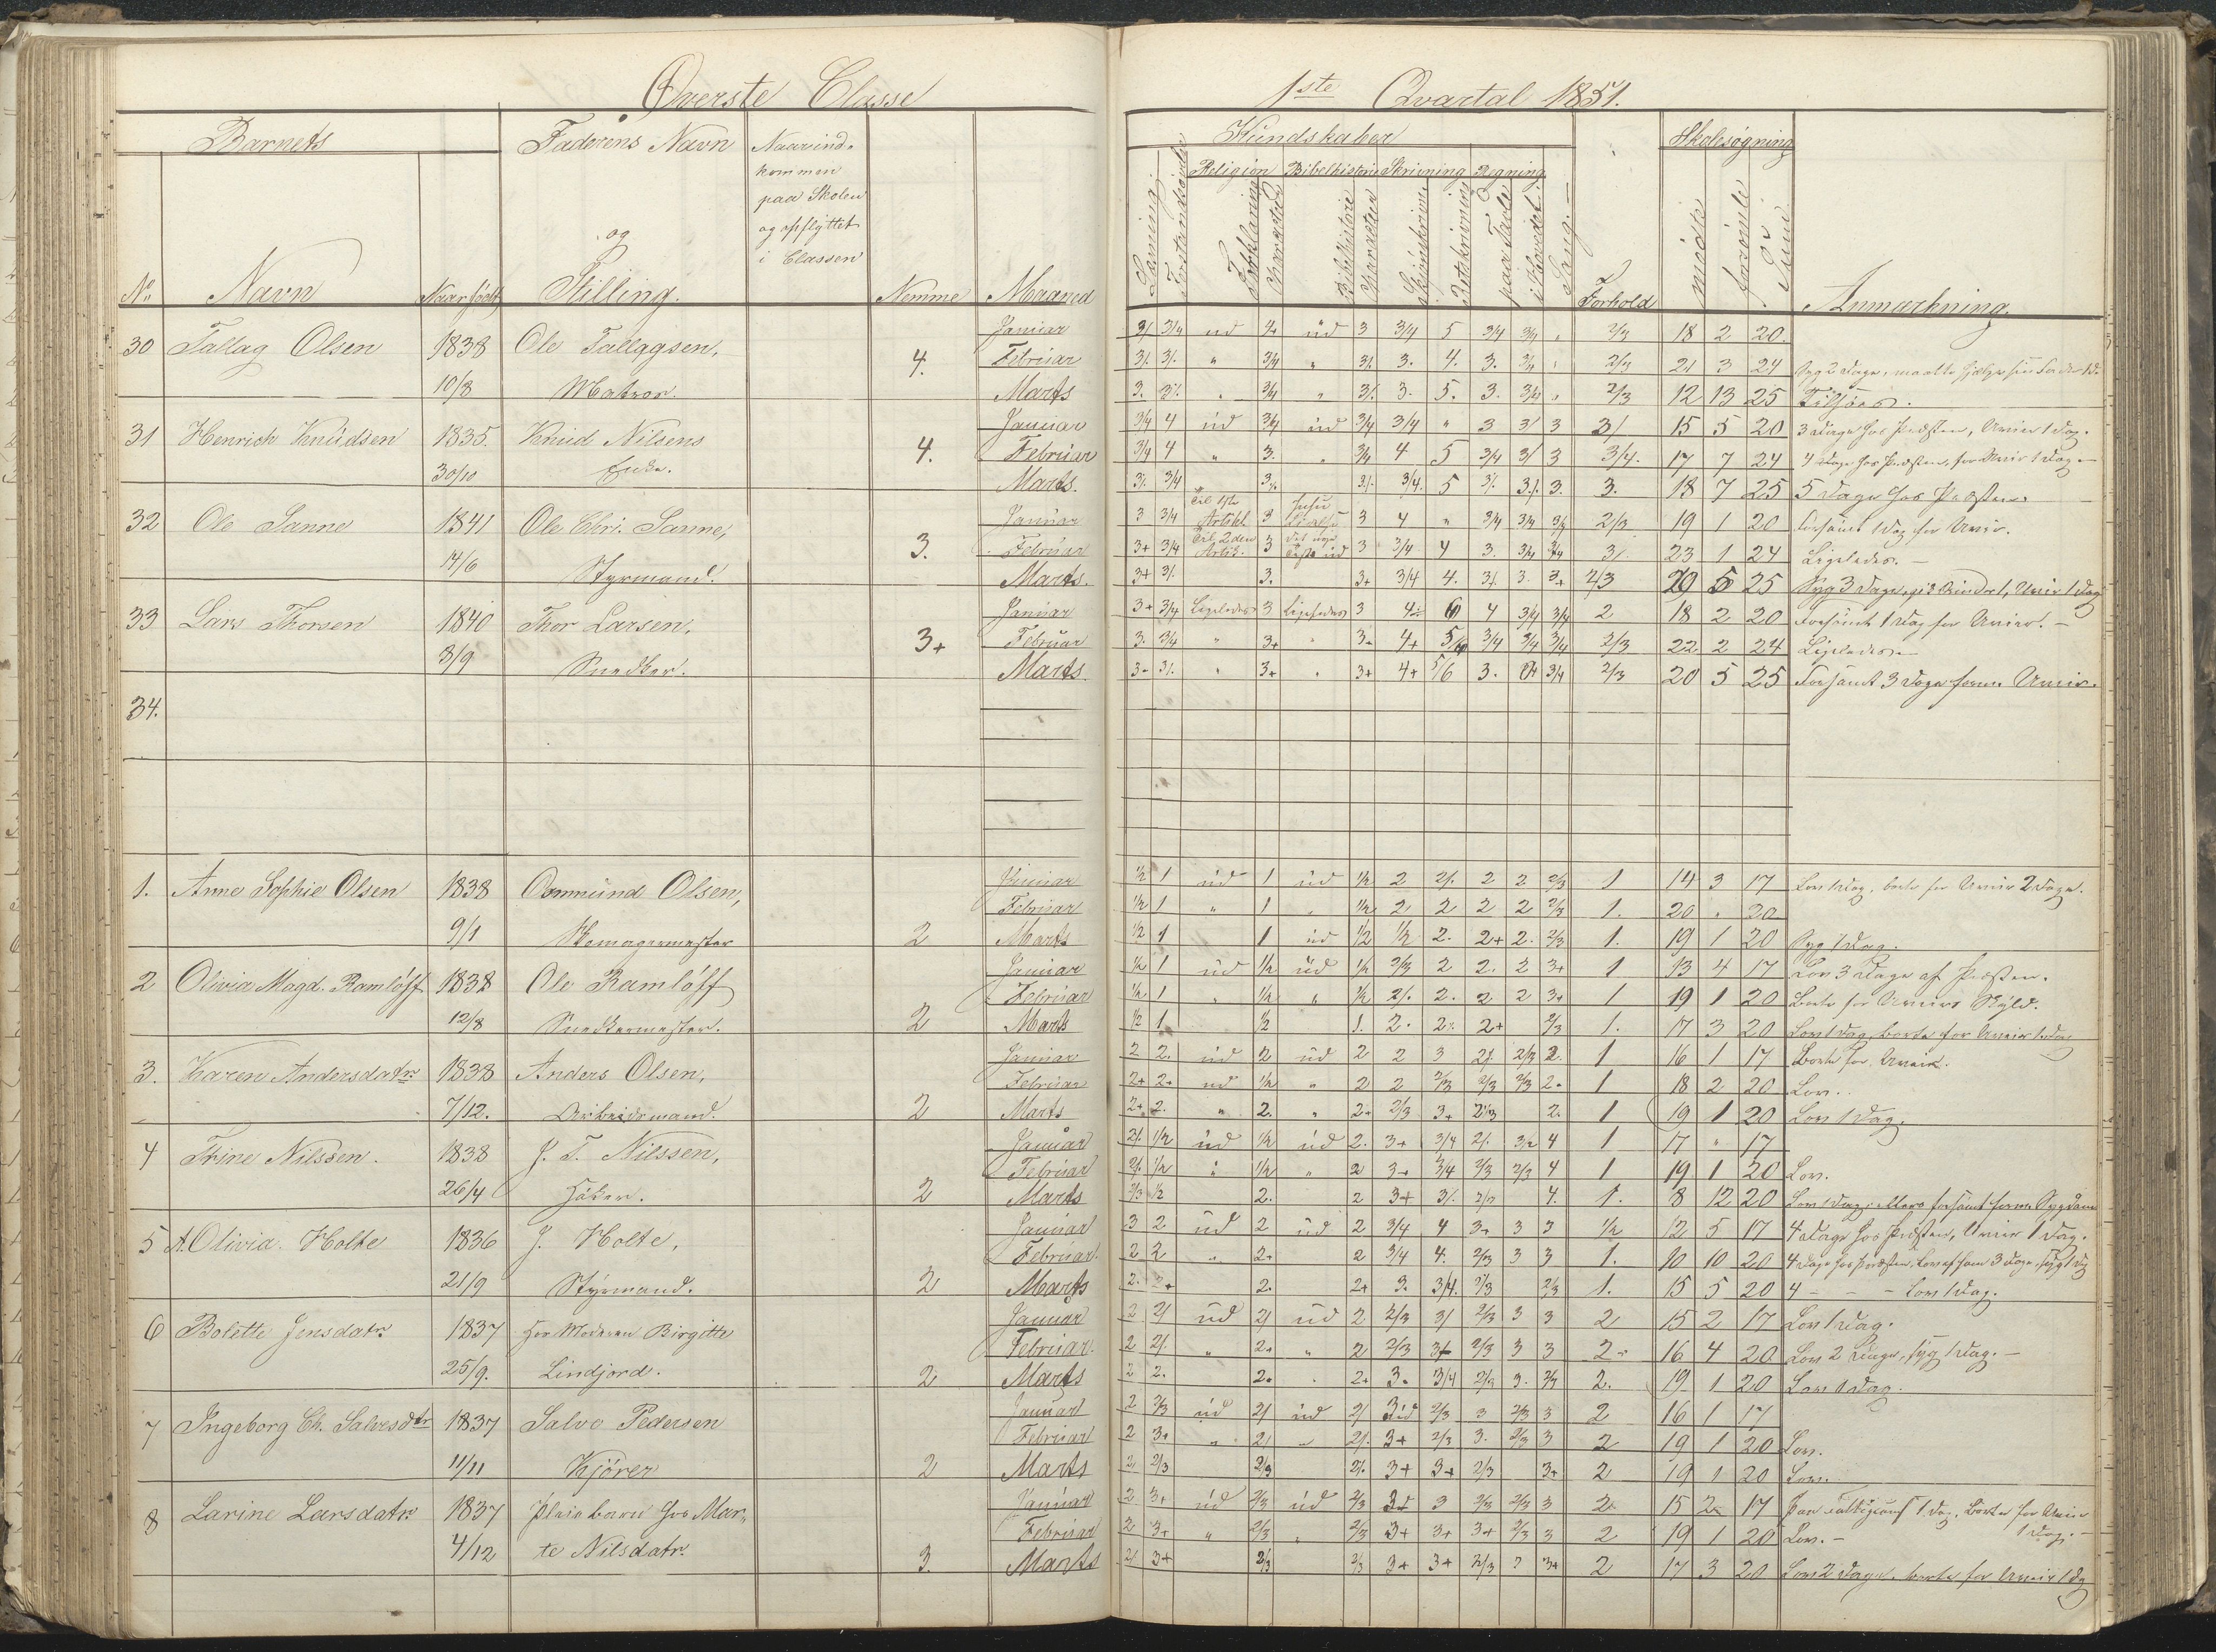 Øverste Classe
1ste Qvartal 1851.
Barnets
Faderens Navn
og
Stilling.
Naar ind-
kommen
paa Skolen
og opflyttet
i Classen
No
Navn
Naar født
Nemme
Maaned
Kundskaber
Religion Bibelhistorie Skrivning Regning
Læsning
Forstandsøvelse
Forklaring
Karacter
Bibelhistorie
Karacter
Skjönskrivning
Retskrivning
paa Tavle
i Hovedet
Sang.
Forhold
Skolesøgning
mödte
forsömte
Sum
Anmærkning.
30 Tallag Olsen 1838 Ole Tallagsen, Januar 3/ 3/4 ud 4+ üd 3 3/4 5 3/4 3/4 " 2/3 18 2 20.
4. Februar 3/. 3/. " 3/4 " 3/. 3. 4. 3. 3/4 " 2/3 21 3 24 Syg 2 Dage, maatte hjelpe sin Fader 1 D.
10/8 Matros. Marts 3. 3/. " 3/4 " 3/. 3. 5. 3. 3/4 " 2/3 12 13 25 Tilsöes.
31 Henrich Knudsen 1835. Knud Nilsens Januar 3/4 4 üd 3/4 üd 3/4 3/4 " 3 3/ 3 3/ 15 5 20 3 Dage hos Præsten, Uveir 1 Dag.
4. Februar 3/4 4 " 3. " 3/4 4 5 3/4 3/ 3 3/4. 17 7 24 4 Dage hos Præsten, for Uveir 1 Dag
30/10 Enke. Marts. 3/. 3/4 3/. 3/. 3/4. 5 3/. 3/. 3. 3. 18 7 25 5 Dage hos Præsten.
32 Ole Sanne 1841 Ole Chri. Sanne, Januar 3 3/4 til 1ste Artikl 3 3 4 " 3/4 3/4 3/4 2/3 19 1 20 Forsömt 1 Dag for Uveir.
3. Februar 3+ 3/4 til 2den Artik. 3 3 3/4 4 3. 3/4 3/4 3/. 23 1 24 Ligeledes.
14/6 Styrmand. Marts. 3+ 3/. 3. 3+ 3/4 4. 3/. 3. 3+ 2/3 20 5 25 Syg 3 Dage, Uveir 1 Dag
33 Lars Thorsen 1840 Thor Larsen, Januar 3+ 3/4 Ligeledes 3 Ligeledes 3 4 6 4 3/4 3/4 2 18 2 20 Forsömt 1 Dag for Uveir.
3+ Februar 3. 3/4 " 3+ " 3+ 4+ 5/6 3/4 3/4 3/4 2/3 22 2 24 Ligeledes.
8/9 Snedker. Marts 3+ 3/. " 3+ " 3+ 4+ 5/6 3. 3/4 2/3 20 5 25 Forsömt 3 Dage form. Uveir.
34.
1. Anne Sophie Olsen 1838 Osmund Olsen, Januar 1/2 1 üd 1 üd 1/2 2 2/. 2 2 2/3 1 14 3 17 Lov 1 Dag, borte for Uveir 2 Dage.
Februar 1/2 1 " 1 " 1/2 2 2 2 2 2/3 1. 20 " 20
9/1 Skomagermester 2 Marts 1/2 1 1 üd 1/2 1/2 2. 2+ 2. 2/3 1. 19 1 20 Syg 1 Dag.
2 Olivia Magd. Ramlöff 1838 Ole Ramlöff Januar 1/2 1 üd 1/2 üd 1/2 2/3 2 2. 2 3+ 1 13 4 17 Lov 3 Dage af Præsten.
Februar 1/2 1 " 1/2 " 1/2 2/. 2. 2 2 3+ 1 19 1 20 Borte for Uveirs Skyld.
12/8 Snedkermester. 2 Marts 1/2 1 1/2 1. 2. 2/. 2+ 2/3 1. 17 3 20 Lov 1 Dag, borte for Uveir 1 Dag
3. Karen Andersdatr 1838 Anders Olsen, Januar 2 2. üd 2 üd 2 2 3 2/. 2/3 2. 1 16 1 17 Borte for Uveir.
Februar 2+ 2+ ud 1/2 " 2 2 2/3 2/3 2/3 2. 1 18 2 20 Lov.
7/12. Arbeidsmand. 2 Marts 2+ 2. " 2. " 2+ 2/3 3+ 2/3 2. 1 19 1 20 Lov 1 Dag.
4 Thine Nilssen. 1838 J. T. Nilssen, Januar 2/. 1/2 üd 1/2 üd 2. 3+ 3/4 2/. 3/2 4 1 17 " 17
Februar 2/. 1/2 " 1/2 " 2 3+ 3/4 2/3 2/3 4 1 19 1 20 Lov.
26/4 Höker. 2 Marts 2/3 1/2 2. 2 3+ 3/. 2/3 4. 1. 8 12 20 Lov 1 Dag, ellers forsömt form. Sygdom
5 A. Olivia Holte 1836 J. Holte, Januar 3 2 üd 2 üd 2 3/4 4 3+ 3 3 1/2 12 5 17 4 Dage hos Præsten, Uveir 1 Dag.
Februar. 2 2 " 2+ 2 3/4 4. 2/3 3 3 1. 10 10 20 4 Dage hos Præsten, Lov 3 Dage, syg 1 Dag
21/9 Styrmand. 2 Marts 2. 2+ 2. 2+ 3. 3/4. 2/3 2/3 1. 15 5 20 4 - - - Lov 1 Dag.
6 Bolette Jensdatr. 1837 hos Moderen Birgitte Januar 2 2/ ud 2/ üd 2 2/3 3/ 2/3 3 3 2 15 2 17 Lov 1 Dag.
Februar. 2 2/. " 2+ " 2 2/3 3+ 2/3 3 3 2+ 16 4 20 Lov 2 Dage, syg 1 Dag.
25/9. Lindjord. 2 Marts 2 2. 2. " 2+ 3. 3/4 2/3 3. 2/3 2. 19 1 20 Lov 1 Dag.
7 Ingeborg Ch. Salvesdtr 1837 Salve Pedersen Januar 2 2/3 üd 2/ üd 2/ 2/3 3 2/3 3 2 16 1 17
Februar 2 3+ " 2/ " 2/. 3+ 2/3 3. 2/3 3 2 19 1 20 Lov.
11/11 Kjörer 2 Marts 2 2/3 2/3 2/. 3+ 3+ 2/3 3+ 2 19 1 20 Lov.
8 Larine Larsdatr. 1837 Pleiebarn hos Mar- Januar 2 3+ üd 2/3 üd 2/3 3 2/3 2/3 3 2 15 2 17 1 Dag, borte for Uveir
1 Dag.
Februar 2 3+ " 2/3 " 2/3 3+ 3+ 3+ 2/3 3 2 19 1 20 Lov.
4/12 te Nilsdatr. 3. Marts 2/ 3+ 2/3 2/3 3+ 3+ 2/3 3 3+ 2 17 3 20 Lov 2 Dage, borte for Uveir 1 Dg